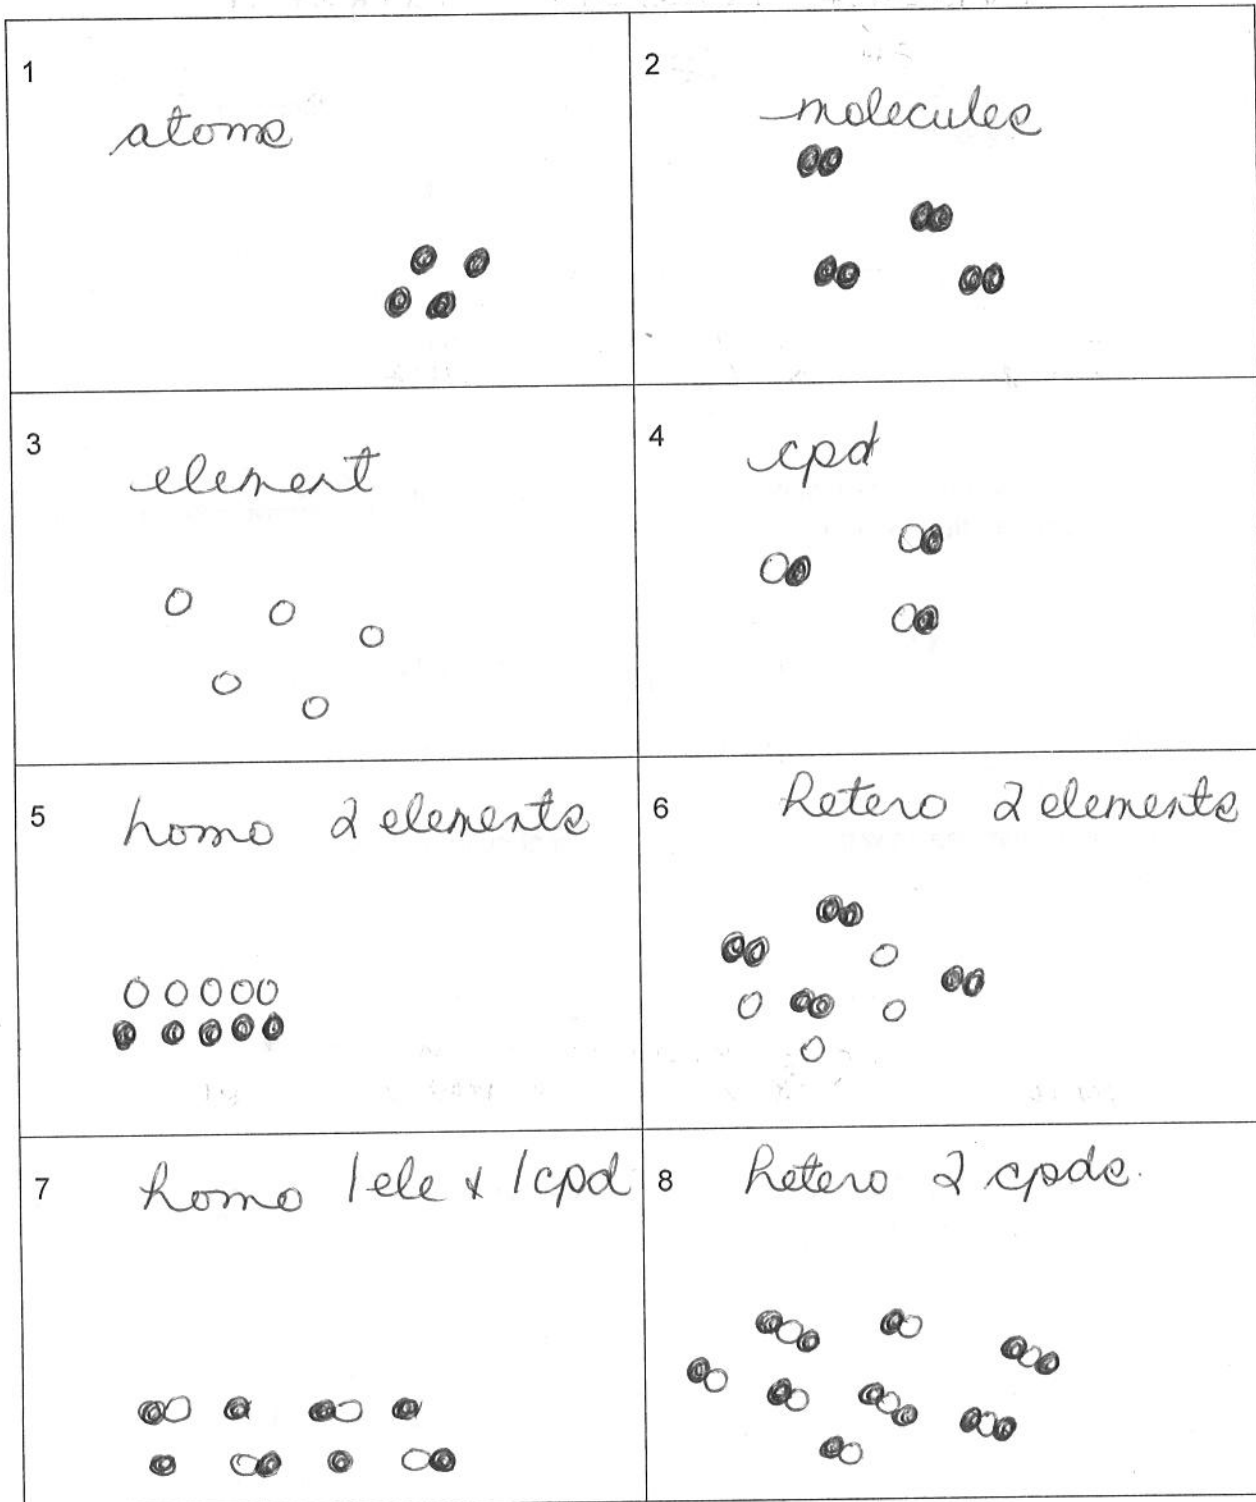 1
atoms
2
molecules
3
element
4
cpd
5
homo 2 elements
6
hetero 2 elements
7
homo 1 ele & 1 cpd
8
hetero 2 cpds.